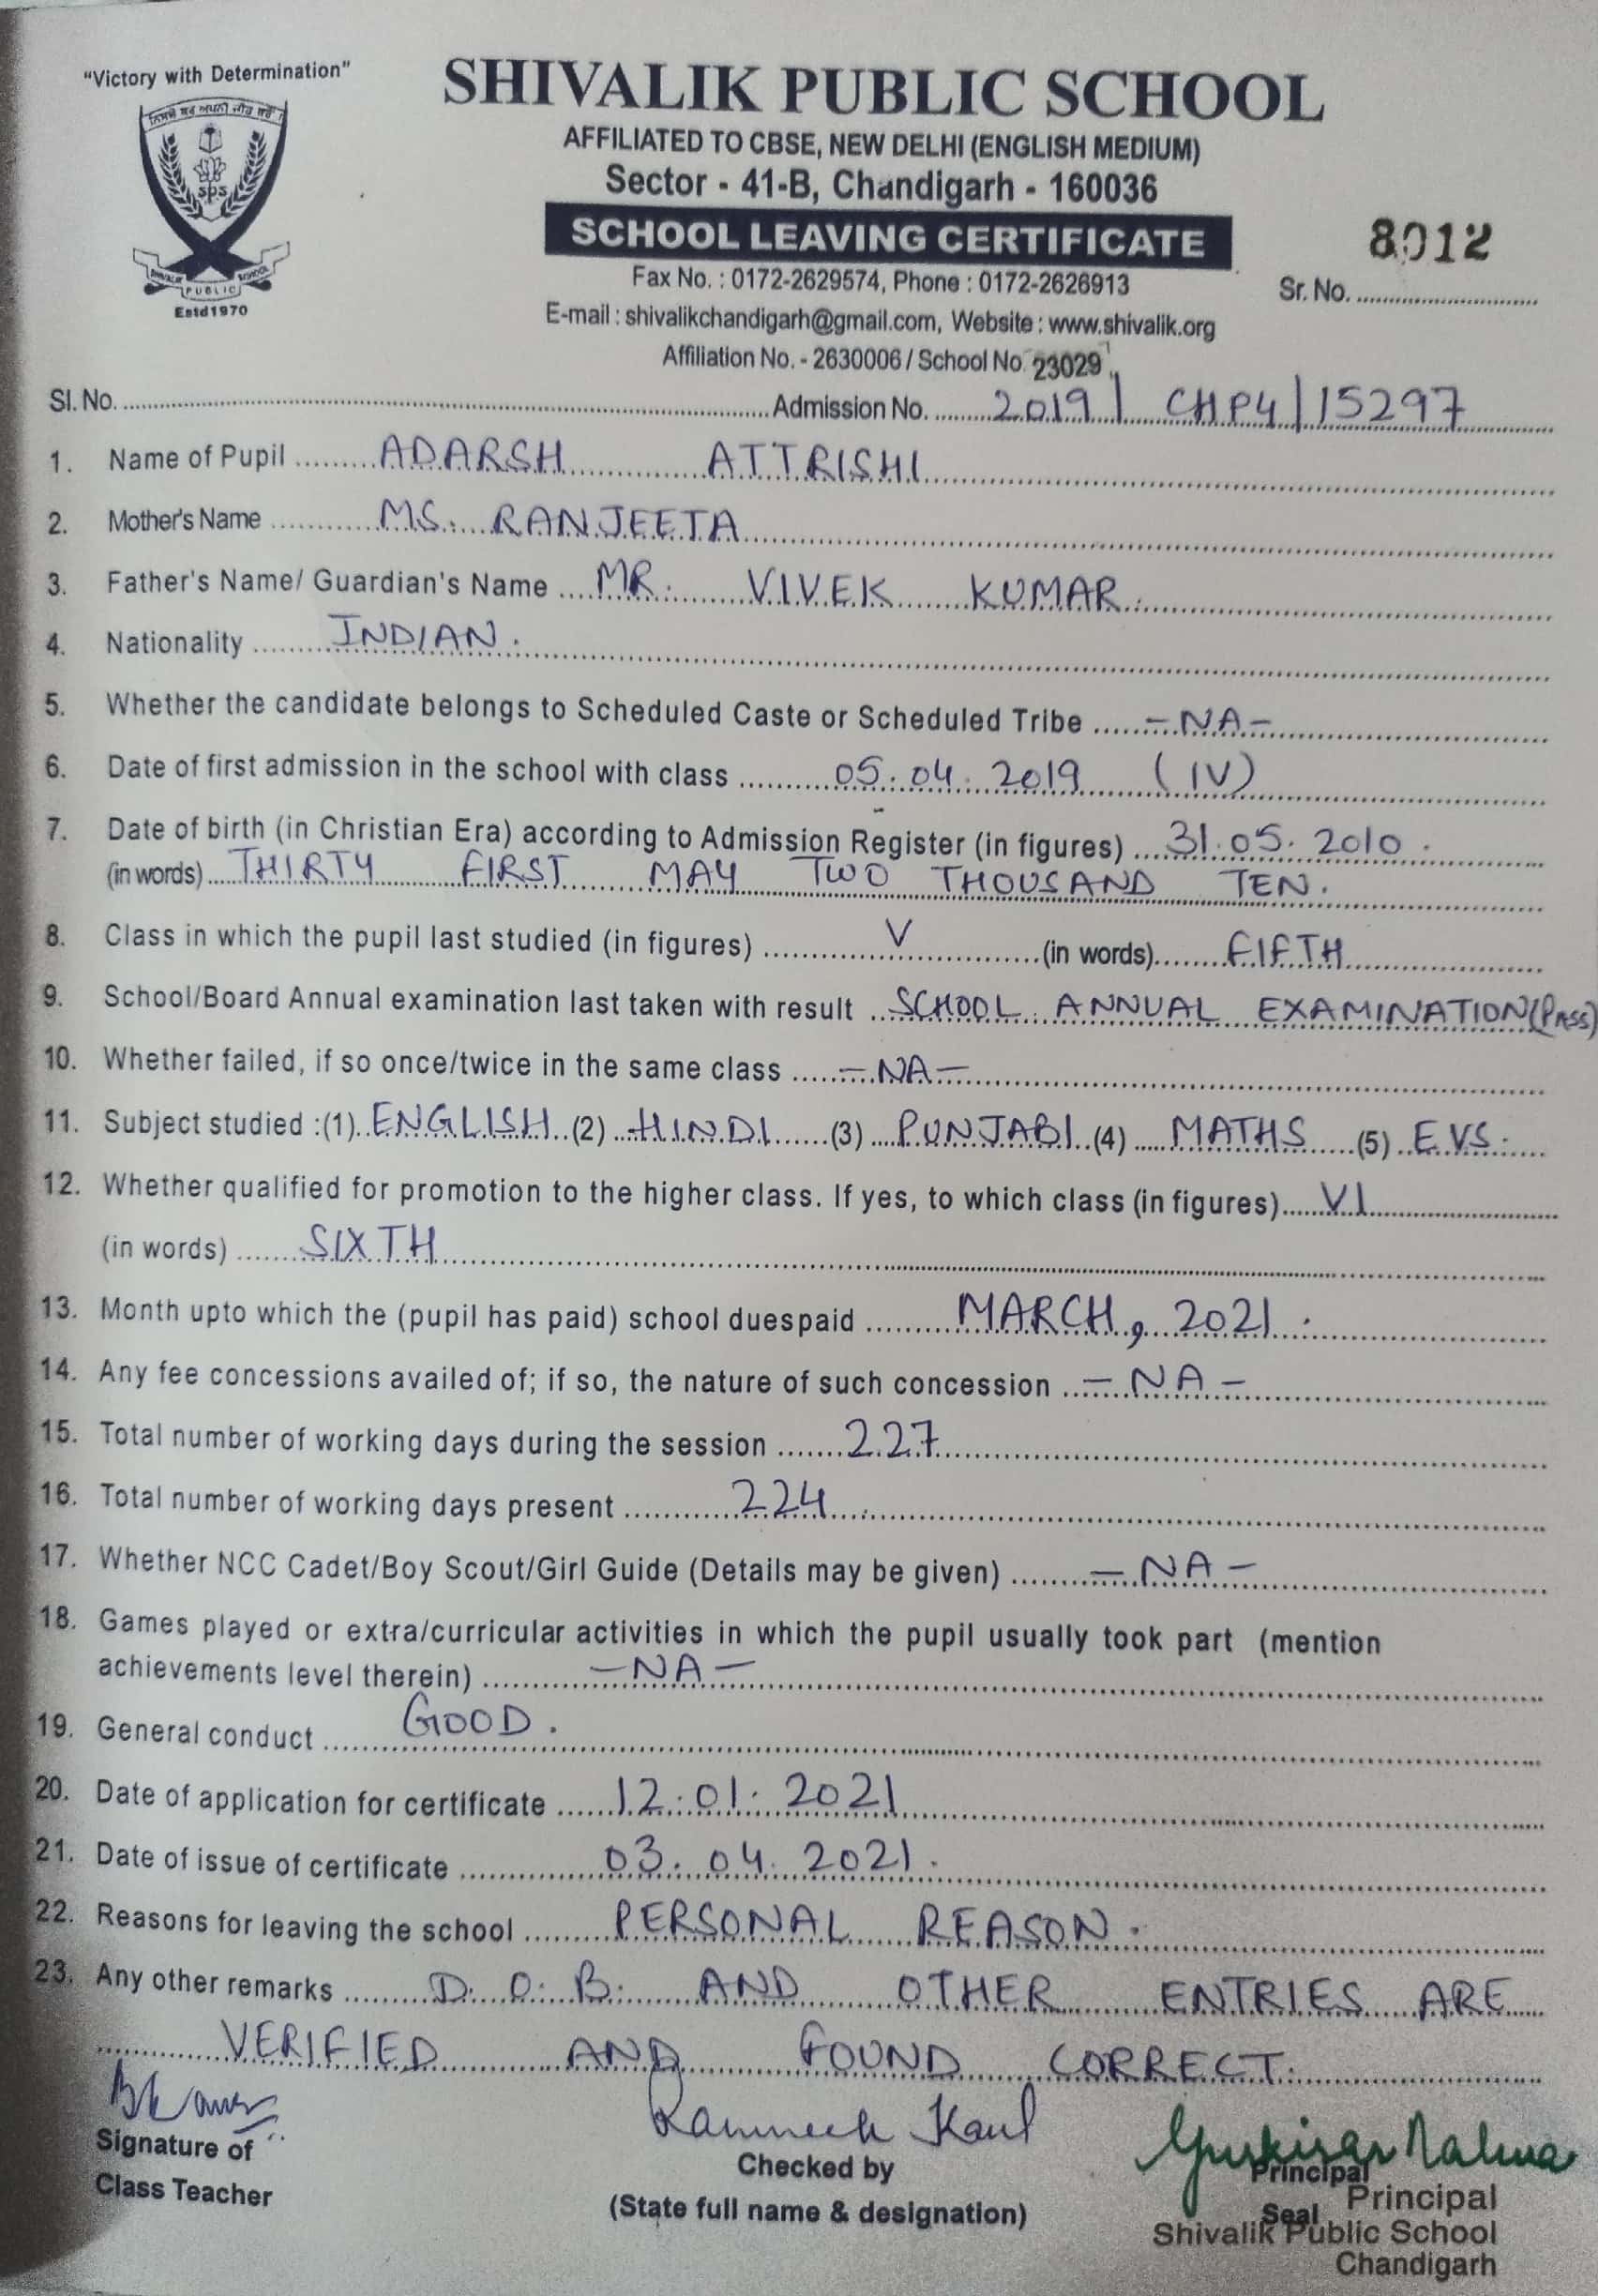 "Victory with Determination"
SPS
SHIVALIK PUBLIC SCHOOL
Estd1970
SHIVALIK PUBLIC SCHOOL
AFFILIATED TO CBSE, NEW DELHI (ENGLISH MEDIUM)
Sector - 41-B, Chandigarh - 160036
SCHOOL LEAVING CERTIFICATE
8012
Fax No. : 0172-2629574, Phone : 0172-2626913
Sr. No.
E-mail : shivalikchandigarh@gmail.com, Website : www.shivalik.org
Affiliation No. - 2630006 / School No. 23029
Sl. No. Admission No. 2019 / CHP4/15297
1. Name of Pupil ADARSH ATTRISHI
2. Mother's Name MS. RANJEETA
3. Father's Name/ Guardian's Name MR. VIVEK KUMAR.
4. Nationality INDIAN.
5. Whether the candidate belongs to Scheduled Caste or Scheduled Tribe -NA-
6. Date of first admission in the school with class 05.04.2019 (IV)
7. Date of birth (in Christian Era) according to Admission Register (in figures) 31.05.2010.
(in words) THIRTY FIRST MAY TWO THOUSAND TEN.
8. Class in which the pupil last studied (in figures) V (in words) FIFTH
9. School/Board Annual examination last taken with result SCHOOL ANNUAL EXAMINATION(PASS)
10. Whether failed, if so once/twice in the same class -NA-
11. Subject studied :(1) ENGLISH (2) HINDI (3) PUNJABI (4) MATHS (5) EVS.
12. Whether qualified for promotion to the higher class. If yes, to which class (in figures) VI
(in words) SIXTH
13. Month upto which the (pupil has paid) school duespaid MARCH, 2021.
14. Any fee concessions availed of; if so, the nature of such concession -NA-
15. Total number of working days during the session 227
16. Total number of working days present 224
17. Whether NCC Cadet/Boy Scout/Girl Guide (Details may be given) -NA-
18. Games played or extra/curricular activities in which the pupil usually took part (mention
achievements level therein) -NA-
19. General conduct GOOD.
20. Date of application for certificate 12.01.2021
21. Date of issue of certificate 03.04.2021.
22. Reasons for leaving the school PERSONAL REASON.
23. Any other remarks D.O.B. AND OTHER ENTRIES ARE
VERIFIED AND FOUND CORRECT.
Kaul
Signature of
Class Teacher
Checked by
(State full name & designation)
Principal
Seal
Principal
Shivalik Public School
Chandigarh